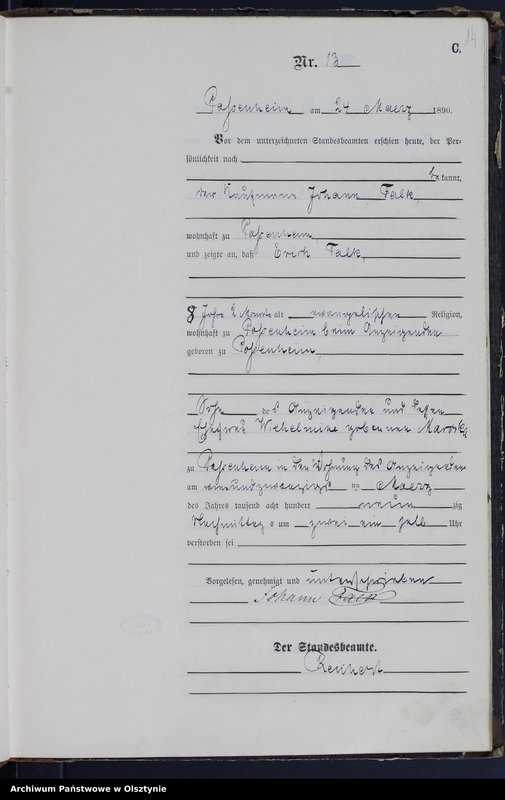 C.
14
Nr. 13
Passenheim am 24 Maerz 1890.
Vor dem unterzeichneten Standesbeamten erschien heute, der Per-
sönlichkeit nach
be kannt,
der Kaufmann Johann Falk,
wohnhaft zu Passenheim,
und zeigte an, daß Erich Falk,
8 Jahre 2 Monate alt evangelischer Religion,
wohnhaft zu Passenheim beim Anzeigenden
geboren zu Passenheim,
Sohn des Anzeigenden und dessen
Ehefrau Wilhelmine geborenen
zu Passenheim in der Wohnung des Anzeigenden
am einundzwanzigsten Maerz
des Jahres tausend acht hundert neun zig
Nachmittag s um zwei ein halb Uhr
verstorben sei
Vorgelesen, genehmigt und unterschrieben
Johann Falk
Der Standesbeamte.
Archiwum Państwowe w Olsztynie